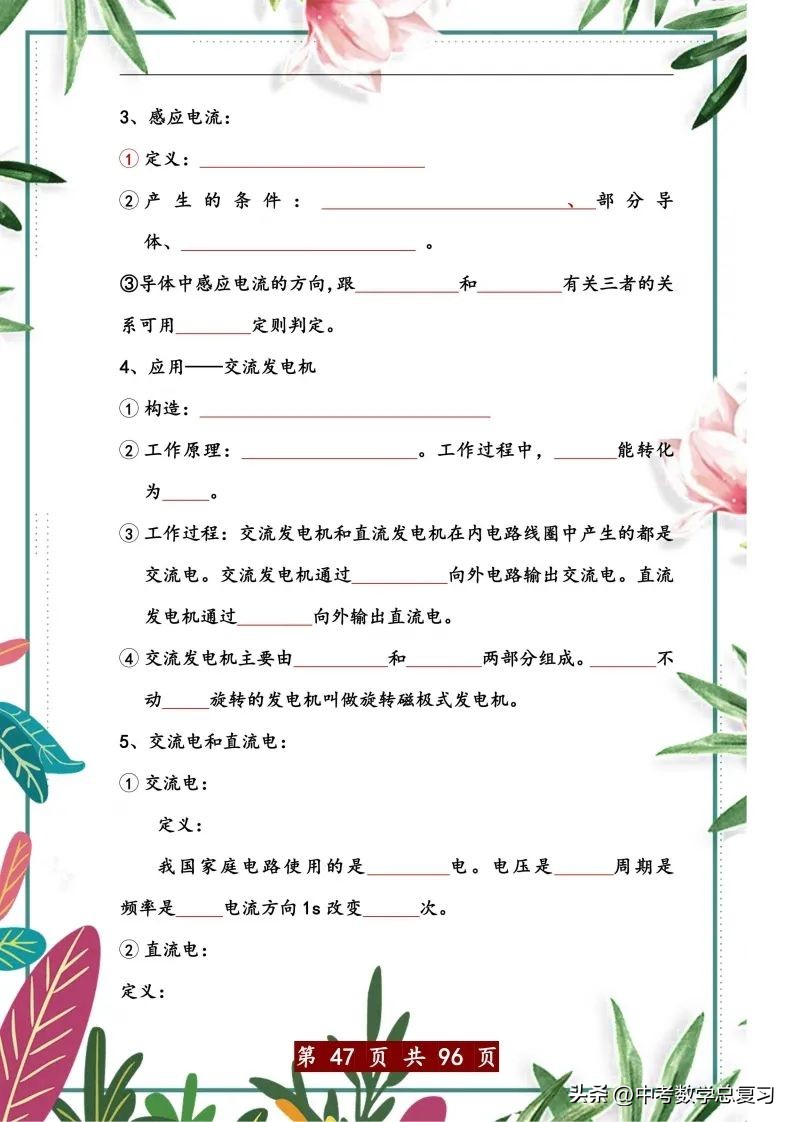 3、感应电流：
① 定义：________________________
② 产生的条件：__________________________、__部分导
体、_________________________ 。
③导体中感应电流的方向，跟___________和_________有关三者的关
系可用________定则判定。
4、应用——交流发电机
① 构造：_______________________________
② 工作原理：___________________。工作过程中，_______能转化
为_____。
③ 工作过程：交流发电机和直流发电机在内电路线圈中产生的都是
交流电。交流发电机通过__________向外电路输出交流电。直流
发电机通过________向外输出直流电。
④ 交流发电机主要由__________和________两部分组成。_______不
动_____旋转的发电机叫做旋转磁极式发电机。
5、交流电和直流电：
① 交流电：
定义：
我国家庭电路使用的是_________电。电压是______周期是
频率是_____电流方向1s改变______次。
② 直流电：
定义：
第 47 页 共 96 页
头条 @中考数学总复习